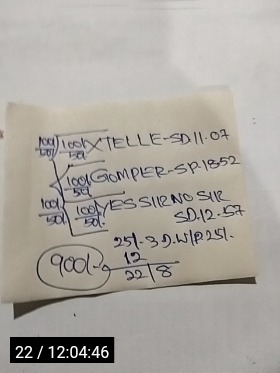 100/50 100/50 XTELLE-SD.11.07
100/50 GOMPLER-SP.1852
100/50 100/50 YESSIRNOSIR
SD.12.57
25/-3 D.W/P25/-
900/- 12
22/8
22 / 12:04:46